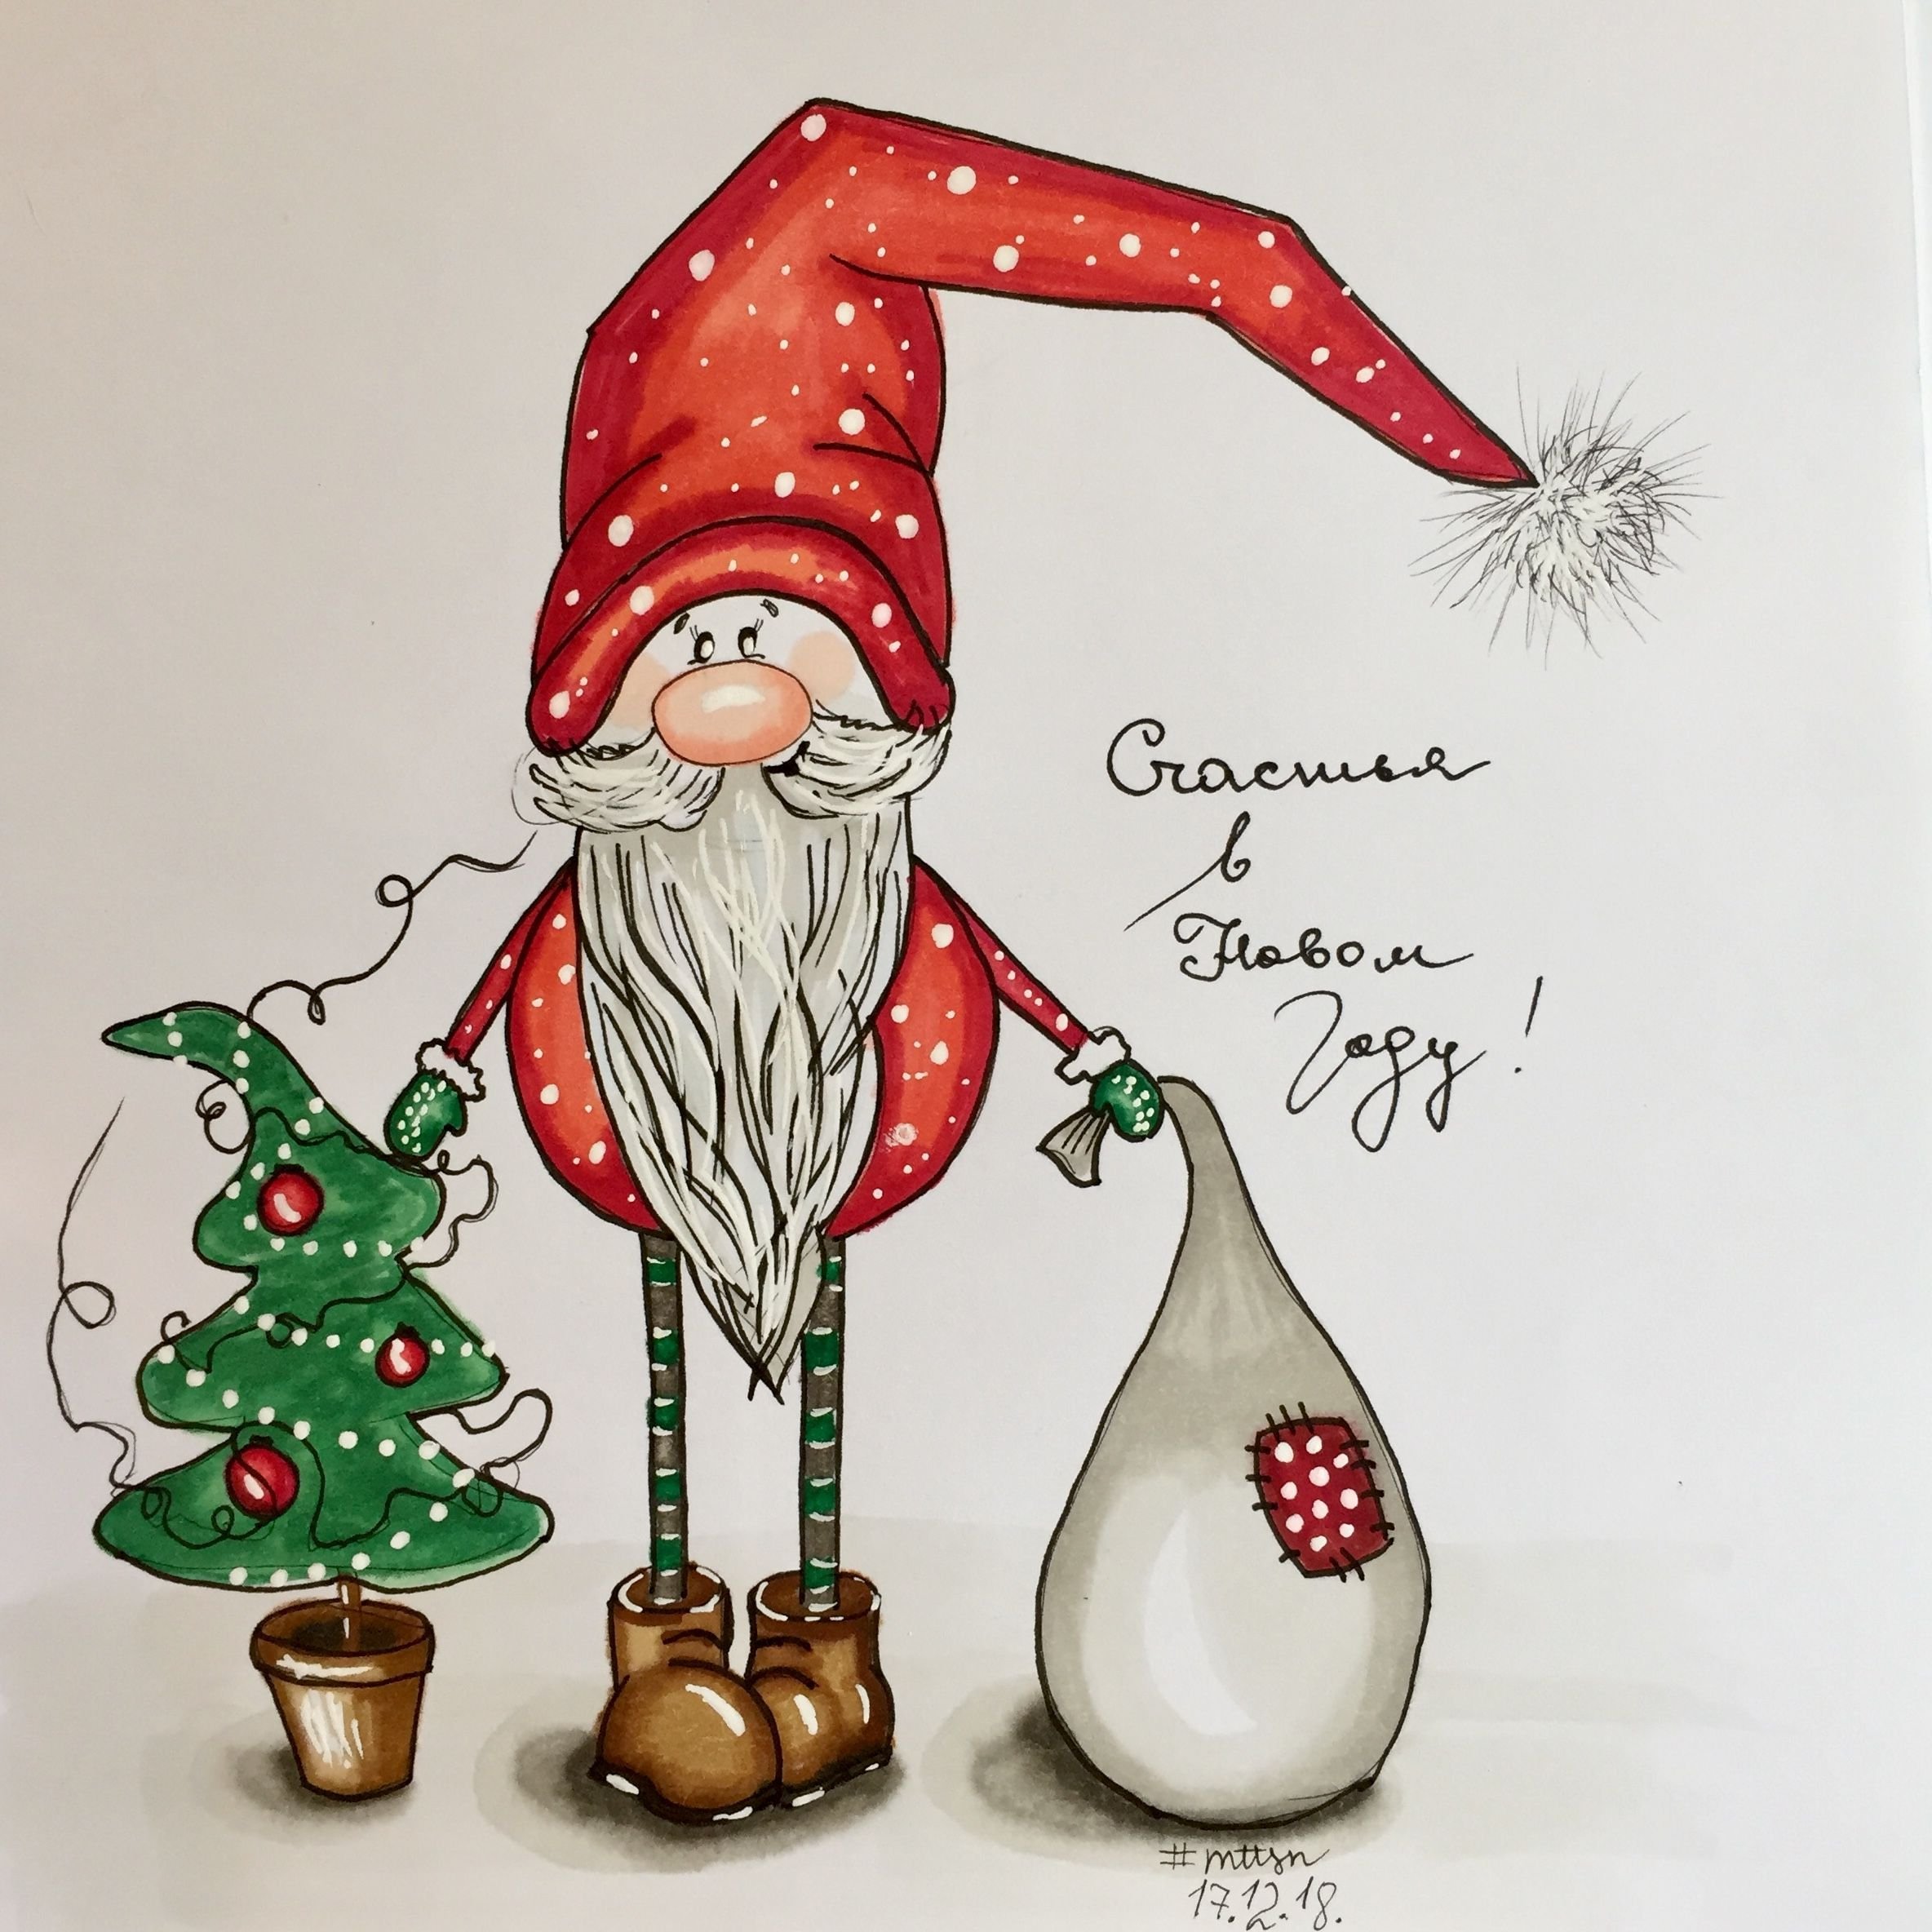 Счастья
в
Новом
Году!
#mttsn
17.12.18.